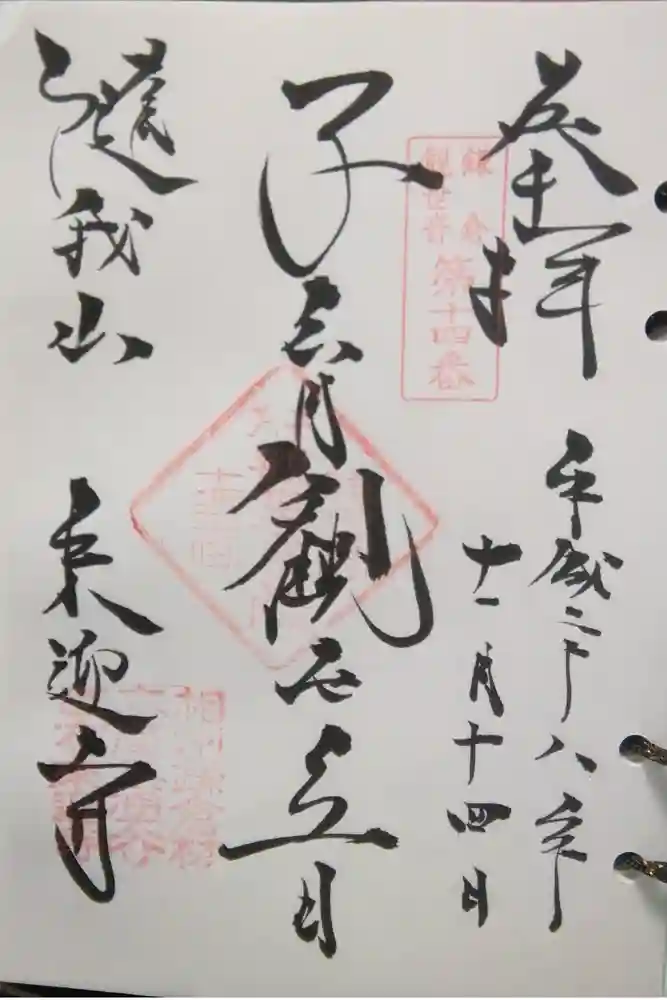 奉拝
鎌倉
観世音
第十四番
平成二十八年
十一月十四日
子育観世音
隨我山
来迎寺